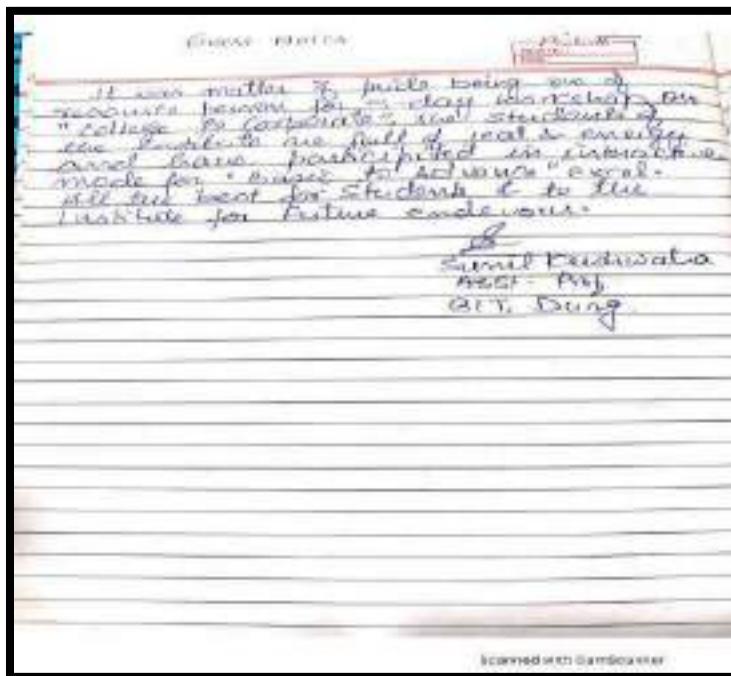 It was matter of pride being one of
resource person for day workshop on
"college to Corporate", the students of
the Institute are full of zeal & energy
and have participted in interactive
mode for "basic to Advance" excel.
All the best for Students & to the
Institute for Future endevour.
Sunil
Asst. Prof
BIT, Durg
Scanned with CamScanner